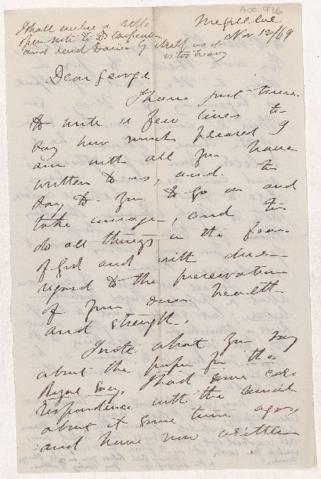 Acc. 976
McGill Col.
Nov 12/69
I shall write a
open note to Dr Carpenter
and send
is too heavy
Dear George
I have just time
to write a few lines to
say how much pleased I
am with all you have
written to us, and to
say to you to go on and
take courage, and to
do all things in the fear
of God and with due
regard to the preservation
of your own health
and strength.
I note what you say
about the paper for the
Royal Socy. I had some cor
respondence with the
about it some time ago,
and have now written